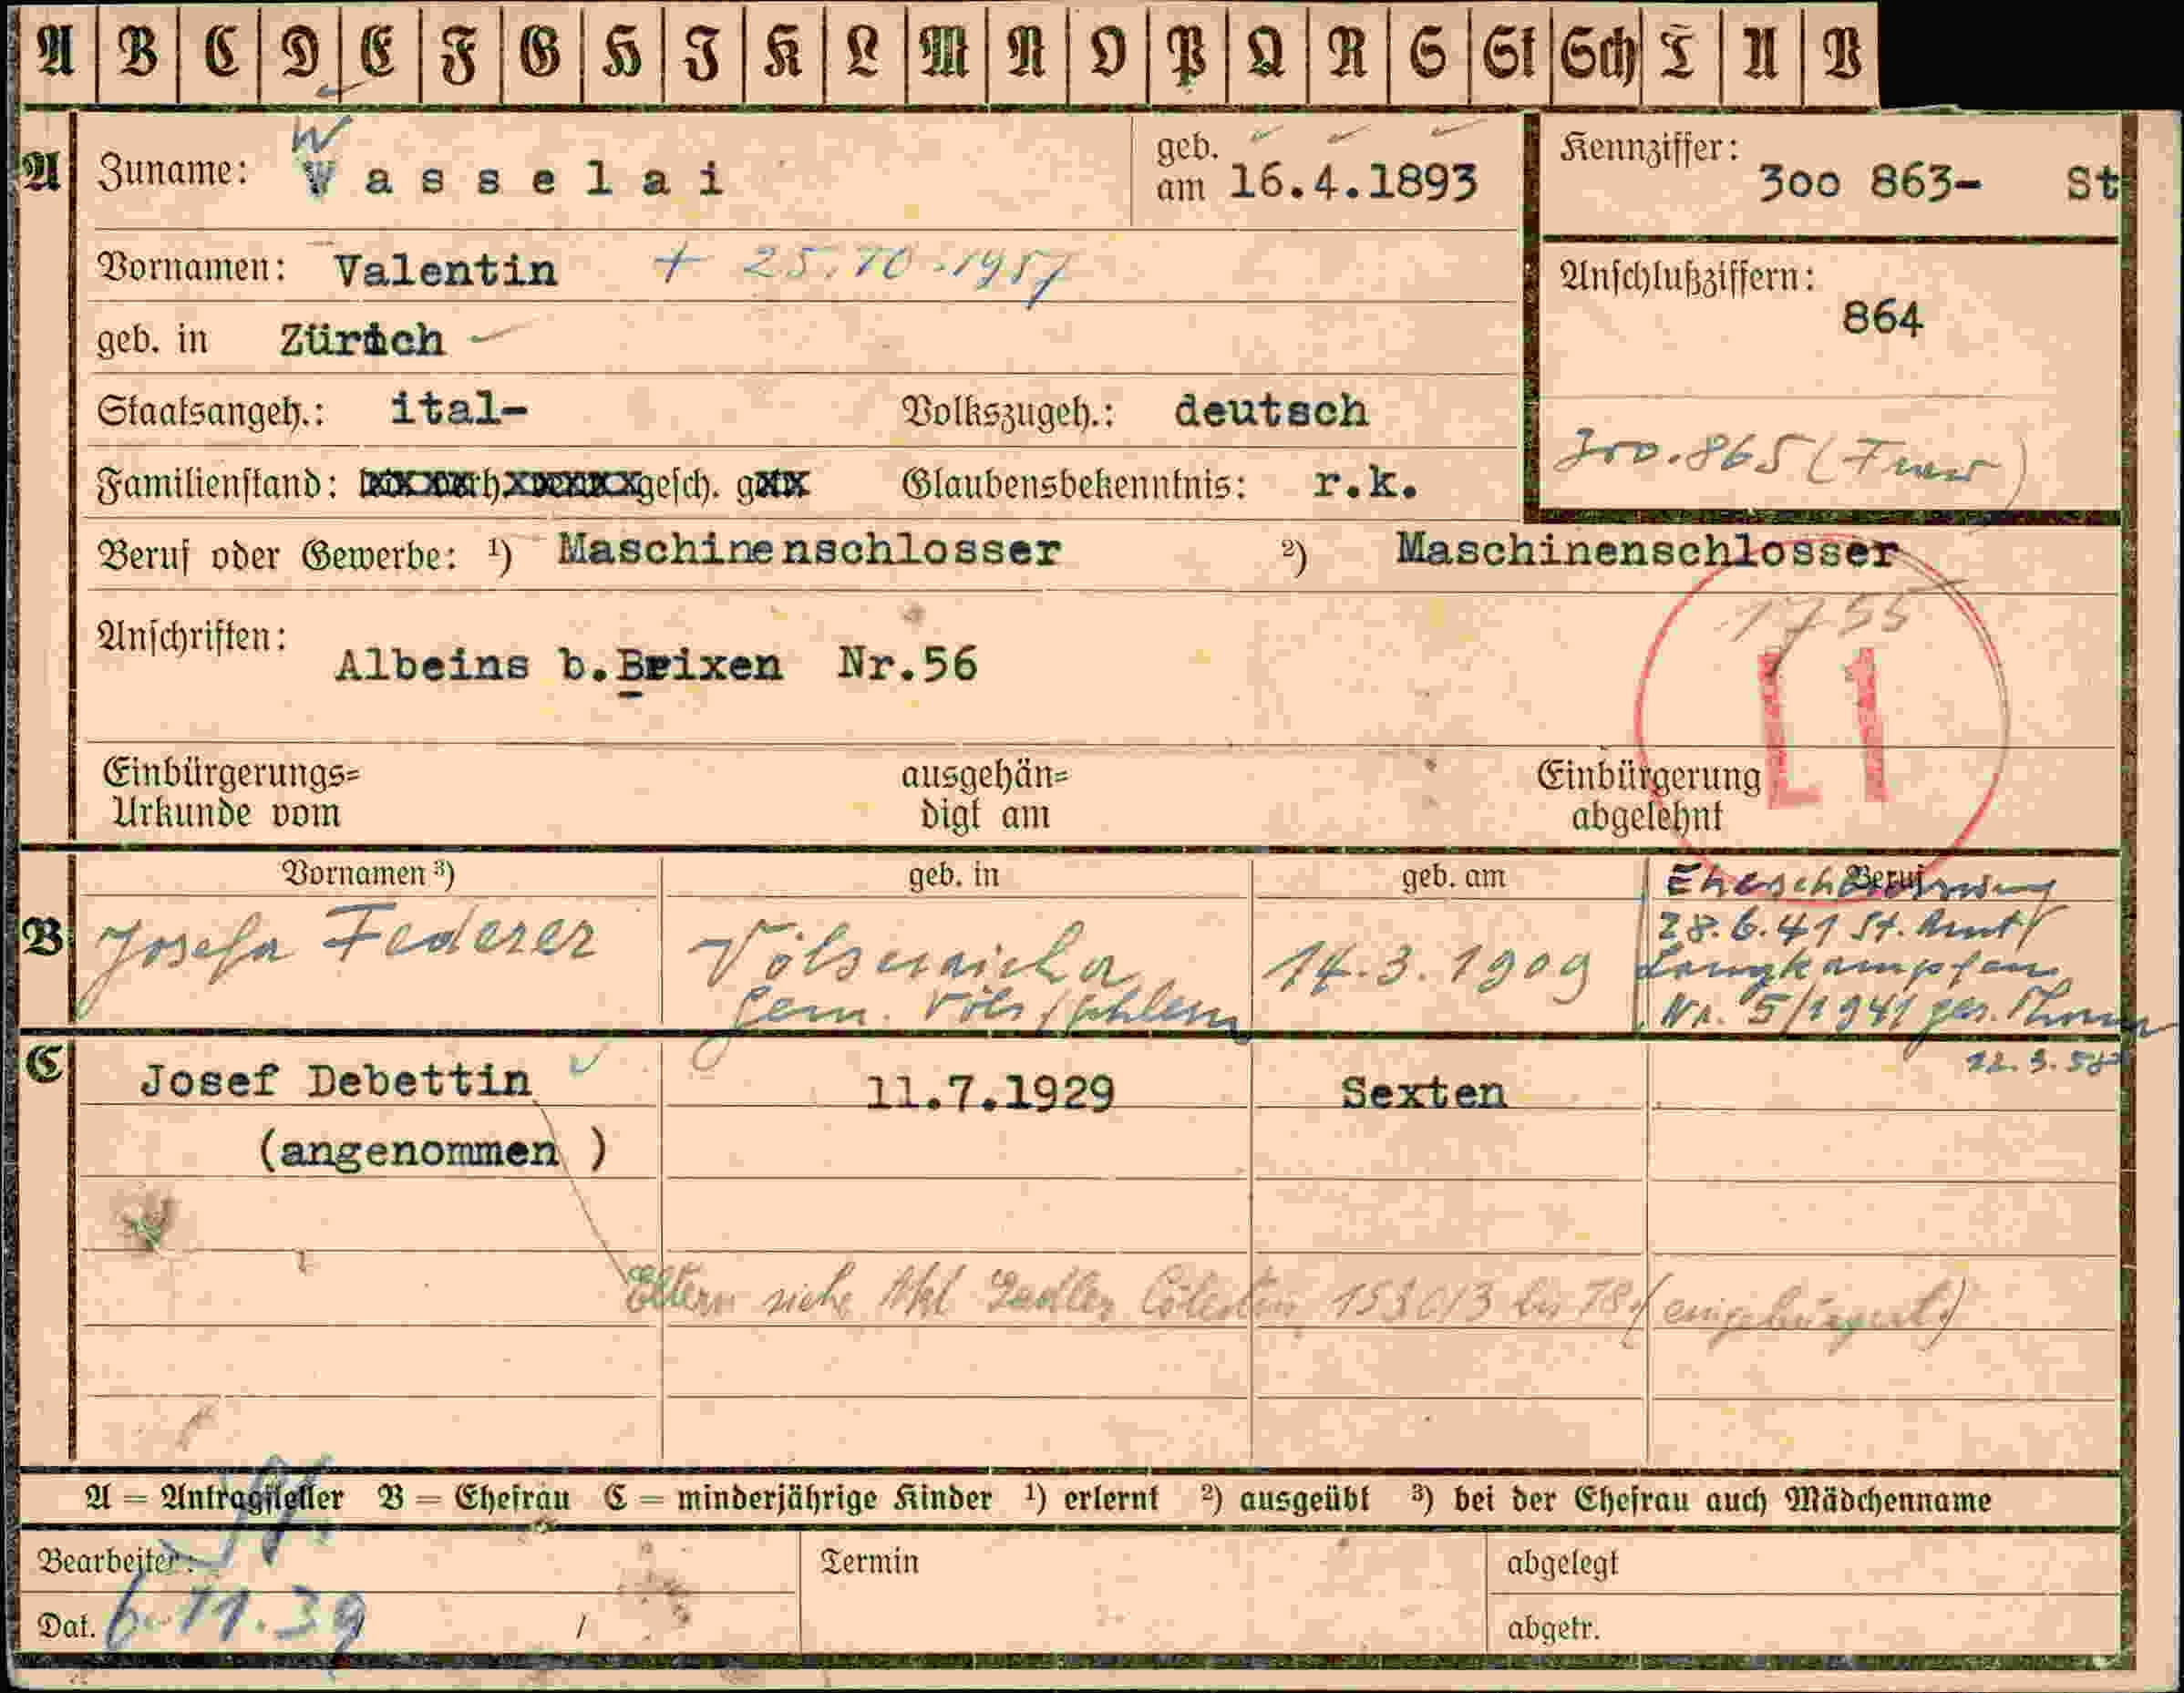 A B C D E F G H I K L M N O P Q R S St Sch T U V
W
A Zuname: Wasselai geb. am 16.4.1893 Kennziffer: 300 863- St
Vornamen: Valentin + 25.10.1957 Anschlußziffern:
864
geb. in Zürich
Staatsangeh.: ital- Volkszugeh.: deutsch
300.865 (Frau)
Familienstand: gesch. Glaubensbekenntnis: r.k.
Beruf oder Gewerbe: ¹) Maschinenschlosser ²) Maschinenschlosser
1755
Anschriften: Albeins b.Brixen Nr.56
Einbürgerungs= ausgehän= Einbürgerung
Urkunde vom digt am abgelehnt
Vornamen ³) geb. in geb. am Beruf
B Josefa Federer Völseraicha 14.3.1909
Gem. Völs/Schlern
Eheschliessung
28.6.41 St. Amt
Langkampfen
Nr. 5/1941
22.3.58
C Josef Debettin 11.7.1929 Sexten
(angenommen )
Eltern siehe 153013 bis 78 (eingebürgert)
A = Antragsteller B = Ehefrau C = minderjährige Kinder ¹) erlernt ²) ausgeübt ³) bei der Ehefrau auch Mädchenname
Bearbeiter: Termin abgelegt
Dat. 6.11.39 / abgetr.